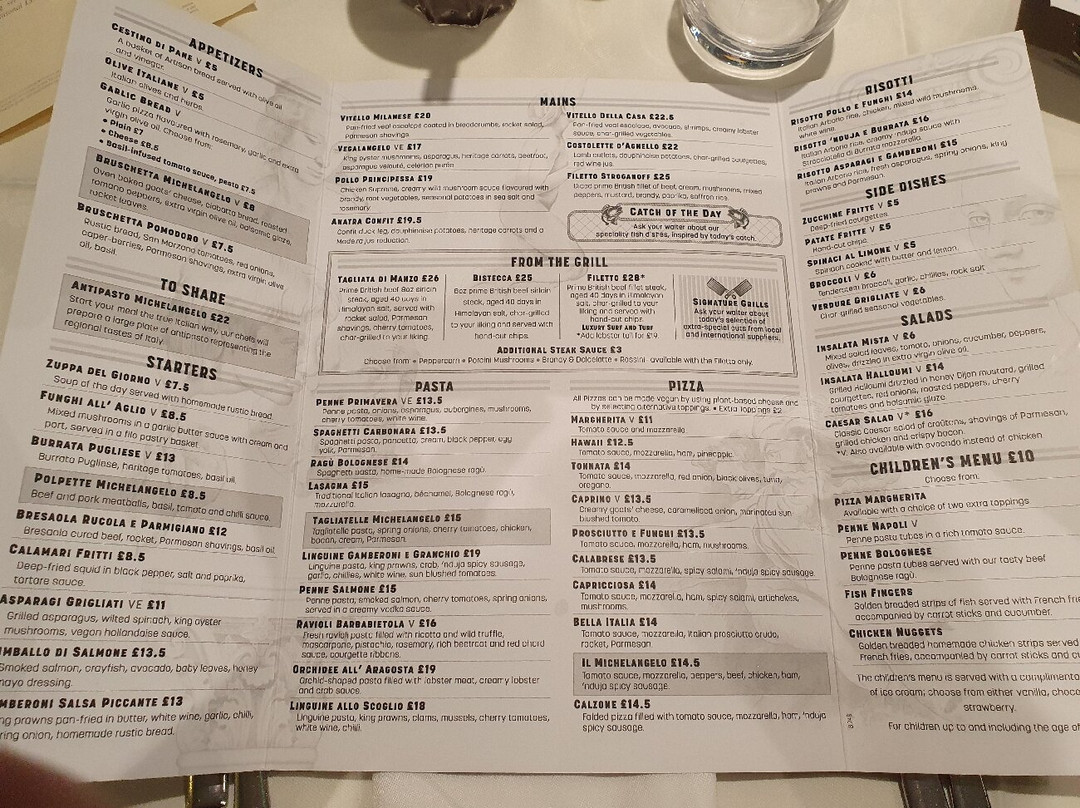 APPETIZERS
CESTINO DI PANE V £5
A basket of Artisan bread served with olive oil
and vinegar.
OLIVE ITALIANE V £5
Italian olives and herbs.
GARLIC BREAD V
Garlic pizza flavoured with rosemary, garlic and extra
virgin olive oil. Choose from:
• Plain £7
• Cheese £8.5
• Basil-infused tomato sauce, pasta £7.5
BRUSCHETTA MICHELANGELO V £8
Oven baked goats' cheese, ciabatta bread, roasted
romano peppers, extra virgin olive oil, balsamic glaze,
rocket leaves.
BRUSCHETTA POMODORO V £7.5
Rustic bread, San Marzano tomatoes, red onions,
caper-berries, Parmesan shavings, extra virgin olive
oil, basil.
TO SHARE
ANTIPASTO MICHELANGELO £22
Start your meal the true Italian way, our chefs will
prepare a large plate of antipasto representing the
regional tastes of Italy.
STARTERS
ZUPPA DEL GIORNO V £7.5
Soup of the day served with homemade rustic bread.
FUNGHI ALL' AGLIO V £8.5
Mixed mushrooms in a garlic butter sauce with cream and
port, served in a filo pastry basket.
BURRATA PUGLIESE V £13
Burrata Pugliese, heritage tomatoes, basil oil.
POLPETTE MICHELANGELO £8.5
Beef and pork meatballs, basil, tomato and chilli sauce.
BRESAOLA RUCOLA E PARMIGIANO £12
Bresaola cured beef, rocket, Parmesan shavings, basil oil.
CALAMARI FRITTI £8.5
Deep-fried squid in black pepper, salt and paprika,
tartare sauce.
ASPARAGI GRIGLIATI VE £11
Grilled asparagus, wilted spinach, king oyster
mushrooms, vegan hollandaise sauce.
MBALLO DI SALMONE £13.5
Smoked salmon, crayfish, avocado, baby leaves, honey
mayo dressing.
MBERONI SALSA PICCANTE £13
ng prawns pan-fried in butter, white wine, garlic, chilli,
ring onion, homemade rustic bread.
MAINS
VITELLO MILANESE £20
Pan-fried veal escalope coated in breadcrumbs, rocket salad,
Parmesan shavings.
VEGALANGELO VE £17
King oyster mushrooms, asparagus, heritage carrots, beetroot,
asparagus velouté, celeriac purée.
POLLO PRINCIPESSA £19
Chicken Supreme, creamy wild mushroom sauce flavoured with
brandy, root vegetables, seasonal potatoes in sea salt and
rosemary.
ANATRA CONFIT £19.5
Confit duck leg, dauphinoise potatoes, heritage carrots and a
Madera jus reduction.
VITELLO DELLA CASA £22.5
Pan-fried veal escalope, avocado, shrimps, creamy lobster
sauce, char-grilled vegetables.
COSTOLETTE D'AGNELLO £22
Lamb cutlets, dauphinoise potatoes, char-grilled courgettes,
red wine jus.
FILETTO STROGANOFF £25
Diced prime British fillet of beef, cream, mushrooms, mixed
peppers, mustard, brandy, paprika, saffron rice.
CATCH OF THE DAY
Ask your waiter about our
speciality fish dishes, inspired by today's catch.
FROM THE GRILL
TAGLIATA DI MANZO £26
Prime British beef 8oz sirloin
steak, aged 40 days in
Himalayan salt, served with
rocket salad, Parmesan
shavings, cherry tomatoes,
char-grilled to your liking.
BISTECCA £25
8oz prime British beef sirloin
steak, aged 40 days in
Himalayan salt, char-grilled
to your liking and served with
hand-cut chips.
FILETTO £28*
Prime British beef fillet steak,
aged 40 days in Himalayan
salt, char-grilled to your
liking and served with
hand-cut chips.
LUXURY SURF AND TURF
*Add lobster tail for £19
SIGNATURE GRILLS
Ask your waiter about
today's selection of
extra-special cuts from local
and international suppliers.
ADDITIONAL STEAK SAUCE £3
Choose from • Peppercorn • Porcini Mushrooms • Brandy & Dolcelatte • Rossini- available with the Filetto only.
PASTA
PENNE PRIMAVERA VE £13.5
Penne pasta, onions, asparagus, aubergines, mushrooms,
cherry tomatoes, white wine.
SPAGHETTI CARBONARA £13.5
Spaghetti pasta, pancetta, cream, black pepper, egg
yolk, Parmesan.
RAGÙ BOLOGNESE £14
Spaghetti pasta, home-made Bolognese ragù.
LASAGNA £15
Traditional Italian lasagna, béchamel, Bolognese ragù,
mozzarella.
TAGLIATELLE MICHELANGELO £15
Tagliatelle pasta, spring onions, cherry tomatoes, chicken,
bacon, cream, Parmesan.
LINGUINE GAMBERONI E GRANCHIO £19
Linguine pasta, king prawns, crab, 'nduja spicy sausage,
garlic, chillies, white wine, sun blushed tomatoes.
PENNE SALMONE £15
Penne pasta, smoked salmon, cherry tomatoes, spring onions,
served in a creamy vodka sauce.
RAVIOLI BARBABIETOLA V £16
Fresh ravioli pasta filled with ricotta and wild truffle,
mascarpone, pistachio, rosemary, rich beetroot and red chard
sauce, courgette ribbons.
ORCHIDEE ALL' ARAGOSTA £19
Orchid-shaped pasta filled with lobster meat, creamy lobster
and crab sauce.
LINGUINE ALLO SCOGLIO £18
Linguine pasta, king prawns, clams, mussels, cherry tomatoes,
white wine, chilli.
PIZZA
All Pizzas can be made vegan by using plant-based cheese and
by selecting alternative toppings. • Extra Toppings £2
MARGHERITA V £11
Tomato sauce and mozzarella.
HAWAII £12.5
Tomato sauce, mozzarella, ham, pineapple.
TONNATA £14
Tomato sauce, mozzarella, red onion, black olives, tuna,
oregano.
CAPRINO V £13.5
Creamy goats' cheese, caramelised onion, marinated sun
blushed tomato.
PROSCIUTTO E FUNGHI £13.5
Tomato sauce, mozzarella, ham, mushrooms.
CALABRESE £13.5
Tomato sauce, mozzarella, spicy salami, 'nduja spicy sausage.
CAPRICCIOSA £14
Tomato sauce, mozzarella, ham, spicy salami, artichokes,
mushrooms.
BELLA ITALIA £14
Tomato sauce, mozzarella, Italian prosciutto crudo,
rocket, Parmesan.
IL MICHELANGELO £14.5
Tomato sauce, mozzarella, peppers, beef, chicken, ham,
'nduja spicy sausage.
CALZONE £14.5
Folded pizza filled with tomato sauce, mozzarella, ham, 'nduja
spicy sausage.
RISOTTI
RISOTTO POLLO E FUNGHI £14
Italian Arborio rice, chicken, mixed wild mushrooms,
white wine.
RISOTTO 'NDUJA E BURRATA £16
Italian Arborio rice, creamy 'nduja sauce with
Stracciatella di Burrata mozzarella.
RISOTTO ASPARAGI E GAMBERONI £15
Italian Arborio rice, fresh asparagus, spring onions, king
prawns and Parmesan.
SIDE DISHES
ZUCCHINE FRITTE V £5
Deep-fried courgettes.
PATATE FRITTE V £5
Hand-cut chips.
SPINACI AL LIMONE V £5
Spinach cooked with butter and lemon.
BROCCOLI V £6
Tenderstem broccoli, garlic, chillies, rock salt
VERDURE GRIGLIATE V £6
Char grilled seasonal vegetables.
SALADS
INSALATA MISTA V £6
Mixed salad leaves, tomato, onions, cucumber, peppers,
olives, drizzled in extra virgin olive oil.
INSALATA HALLOUMI V £14
grilled Halloumi drizzled in honey Dijon mustard, grilled
courgettes, red onions, roasted peppers, cherry
tomatoes and balsamic glaze.
CAESAR SALAD V* £16
Classic Caesar salad of croûtons, shavings of Parmesan,
grilled chicken and crispy bacon.
*V Also available with avocado instead of chicken
CHILDREN'S MENU £10
Choose from:
PIZZA MARGHERITA
Available with a choice of two extra toppings
PENNE NAPOLI V
Penne pasta tubes in a rich tomato sauce.
PENNE BOLOGNESE
Penne pasta tubes served with our tasty beef
Bolognese ragù.
FISH FINGERS
Golden breaded strips of fish served with French frie
accompanied by carrot sticks and cucumber.
CHICKEN NUGGETS
Golden breaded homemade chicken strips served
French fries, accompanied by carrot sticks and cu
The children's menu is served with a complimenta
of ice cream; choose from either vanilla, choco
strawberry.
For children up to and including the age of